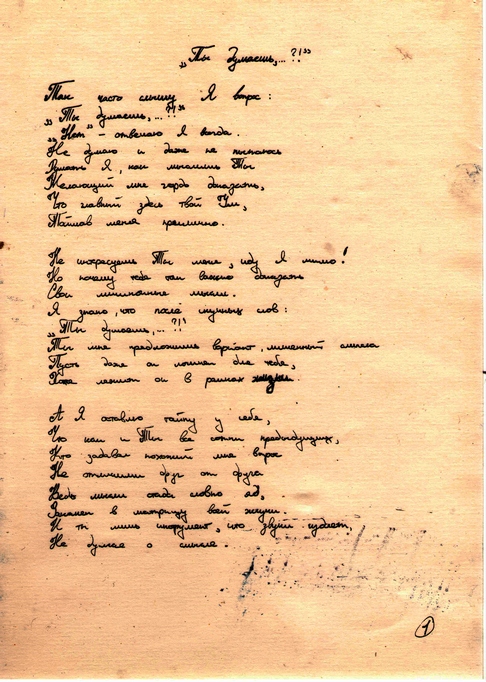 „Ты думаешь,...?!"
Так часто слышу Я впрос:
„Ты думаешь,...?!"
„Нет" - отвечаю Я всегда.
Не думаю и даже не пытаюсь
Думать Я, как мыслишь Ты
Желающий мне гордо доказать,
Что главный здесь твой Ум,
Поймав меня
Не интересуешь Ты меня, иду Я мимо!
Но почему тебе так важно доказать
Свои мысли.
Я знаю, что после скучных слов:
„Ты думаешь,...?!"
Ты мне предложишь вариант, лишенный смысла
Пусть даже он логичен для тебя,
он в рамках жизни.
А Я оставлю тайну у себя,
Что как и Ты все сотни предыдущих,
Кто задавал похожий мне впрос
Не отличили друг от друга
Ведь мысли стада словно яд,
в матрицу всей жизни.
И ты лишь инструмент, что звуки издает,
Не думая о смысле.
1